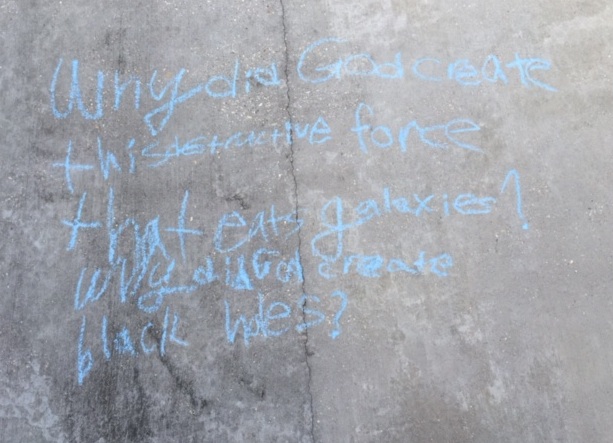 Why did God create
this destructive force
that eats galaxies?
why did God create
black holes?